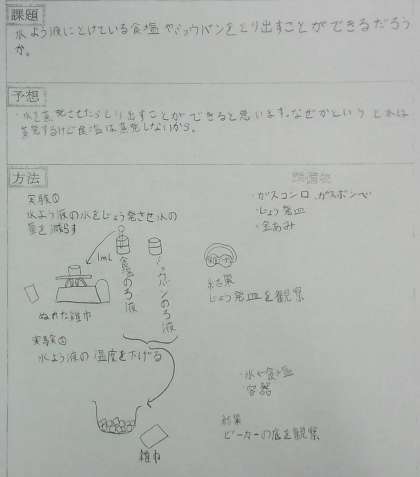 課題
水よう液にとけている食塩やミョウバンをとり出すことができるだろう
か。
予想
・水を蒸発させたらとり出すことができると思います。なぜかという
蒸発するけど食塩は蒸発しないから。
方法
実験①
水よう液の水をじょう発させ水の
量を減らす
1mL
食塩のろ液
ミョウバンのろ液
ぬれた雑巾
・ガスコンロ ガスボンベ
・じょう発皿
・金あみ
結果
じょう発皿を観察
実験②
水よう液の温度を下げる
・氷と食塩
・容器
雑巾
結果
ビーカーの底を観察